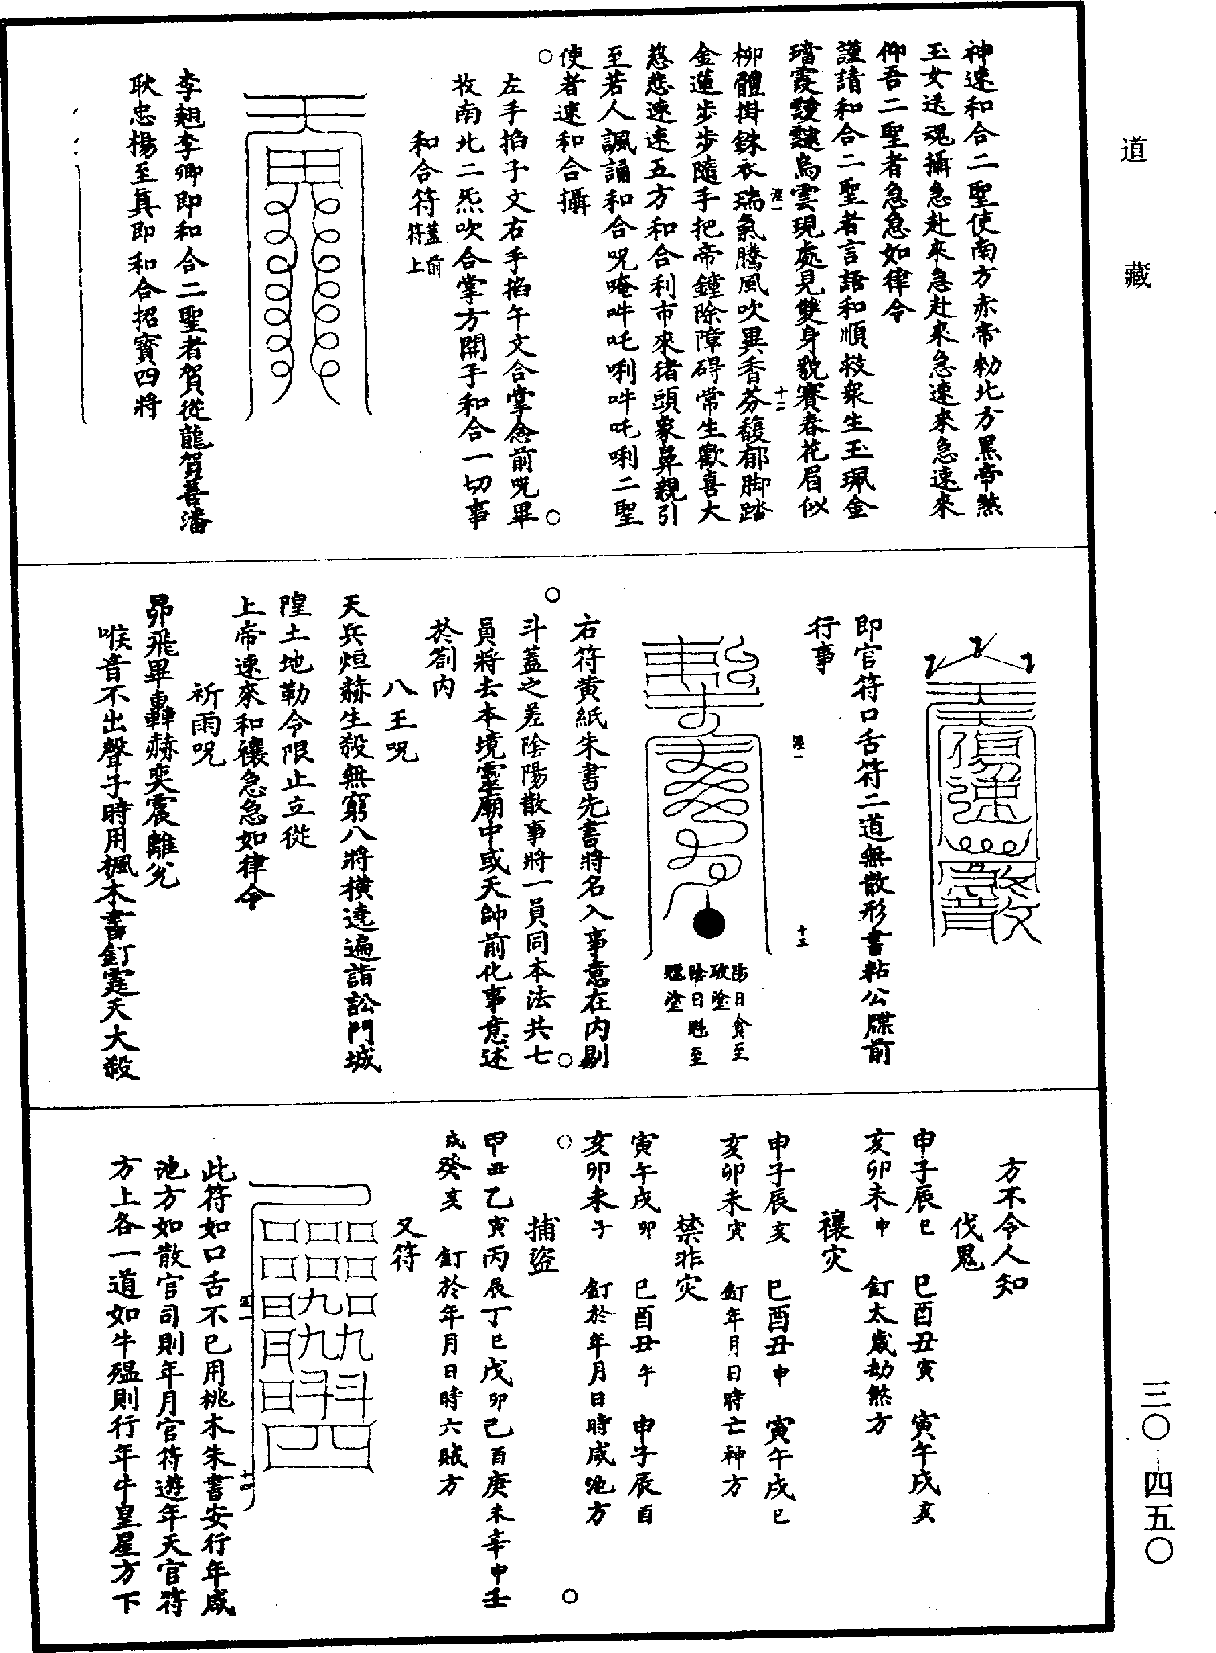 道藏
三〇-四五〇
神速和合二聖使南方赤帝勑北方黑帝煞
玉女送魂攝急赴來急赴來急速來急速來
仰吾二聖者急急如律令
謹請和合二聖者言語和順救眾生玉珮金
璫霞靉靆烏雲現處見雙身貌賽春花眉似
柳體掛銖衣瑞氣騰風吹異香芬馥郁脚踏
金蓮步步隨手把帝鐘除障碍常生歡喜大
慈悲速速五方和合利市來猪頭象鼻親引
至若人諷誦和合呪唵吽吒唎吽吒唎二聖
使者速和合攝
左手掐子文右手掐午文合掌念前呪畢
收南北二炁吹合掌方開手和合一切事
和合符蓋前符上
李趐李卿即和合二聖者賀從龍賀善潘
耿忠楊至真即和合招寶四將
即官符口舌符二道無散形書粘公牒前
行事
陽日貪至
破塗
陰日魁至
魒塗
右符黃紙朱書先書將名入事意在内剔
斗蓋之差陰陽散事將一員同本法共七
員將去本境靈廟中或天帥前化事意述
於劄内
八王呪
天兵烜赫生殺無窮八將横遶遍詣訟門城
隍土地勒令限止立從
上帝速來和禳急急如律令
祈雨呪
昴飛畢轟赫奕震離兊
喉音不出聲子時用楓木書釘霆天大殺
方不令人知
伐鬼
申子辰巳 巳酉丑寅 寅午戌亥
亥卯未申 釘太歲劫煞方
禳灾
申子辰亥 巳酉丑申 寅午戌巳
亥卯未寅 釘年月日時亡神方
禁非灾
寅午戌卯 巳酉丑午 申子辰酉
亥卯未子 釘於年月日時咸池方
捕盜
甲丑乙寅丙辰丁巳戊卯己酉庚未辛申壬
戌癸亥 釘於年月日時六賊方
又符
此符如口舌不已用桃木朱書安行年咸
池方如散官司則年月官符遊年天官符
方上各一道如牛瘟則行年牛皇星方下